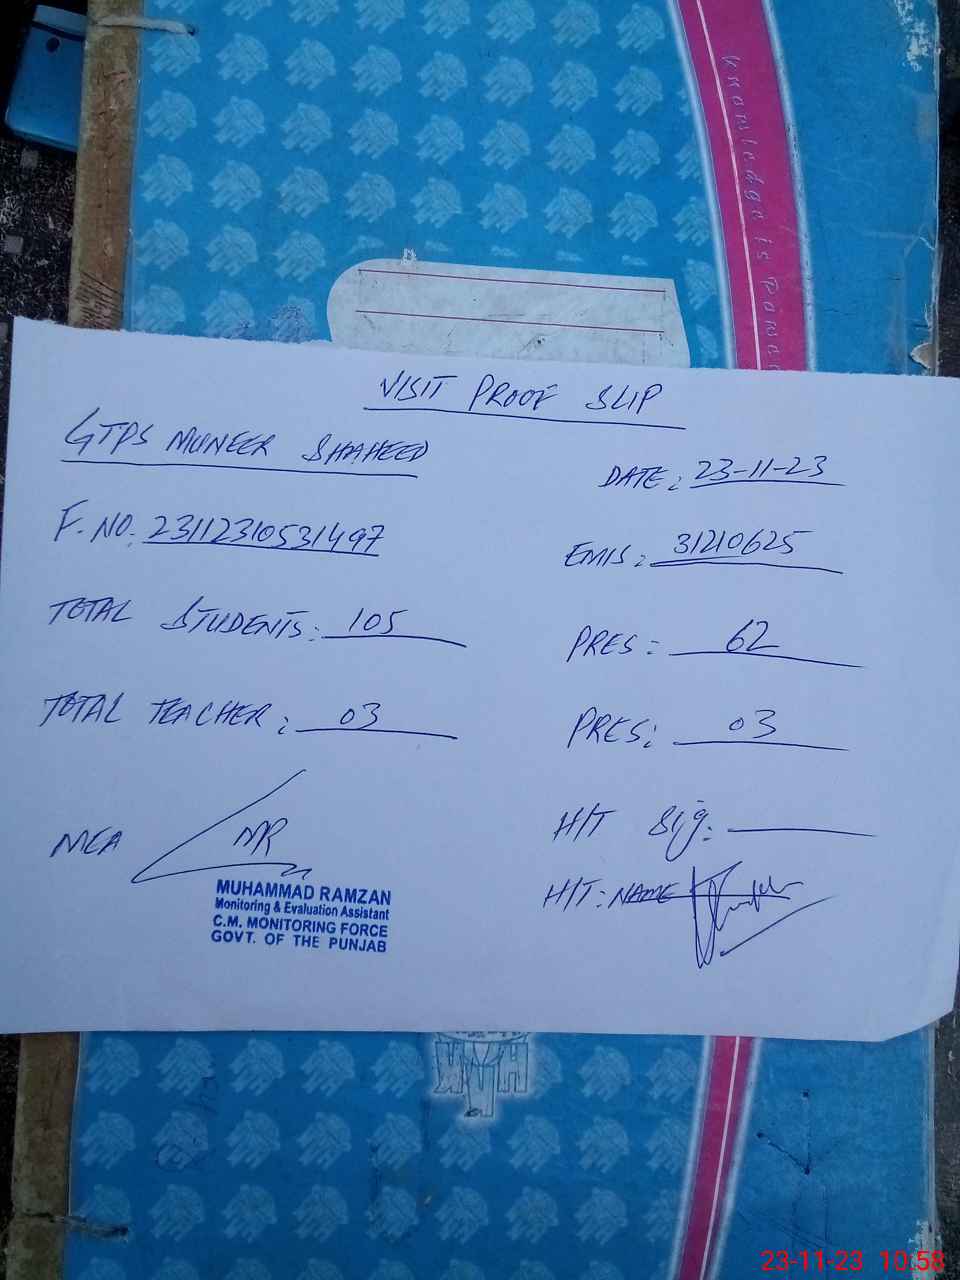 Knowledge is Power
VISIT PROOF SLIP
GTPS MUNEER SHAHEED
DATE: 23-11-23
F. NO: 23112310531497
EMIS: 31210625
TOTAL STUDENTS: 105
PRES: 62
TOTAL TEACHER: 03
PRES: 03
H/T Sig:
MEA MR
H/T: NAME
MUHAMMAD RAMZAN
Monitoring & Evaluation Assistant
C.M. MONITORING FORCE
GOVT. OF THE PUNJAB
23-11-23 10:58